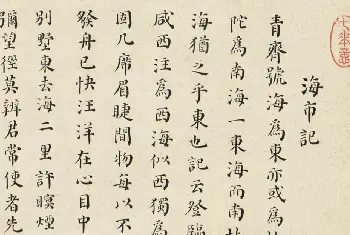 海市記
青齊號海爲東亦或爲
陀爲南海一東海而南
海猶之乎東也記云登臨
咸西注爲西海似西獨爲
固几席眉睫間物每以不
發舟已快汪洋在心目中
別墅東去海二里許暝煙
彌望徑莫辨君常使者先